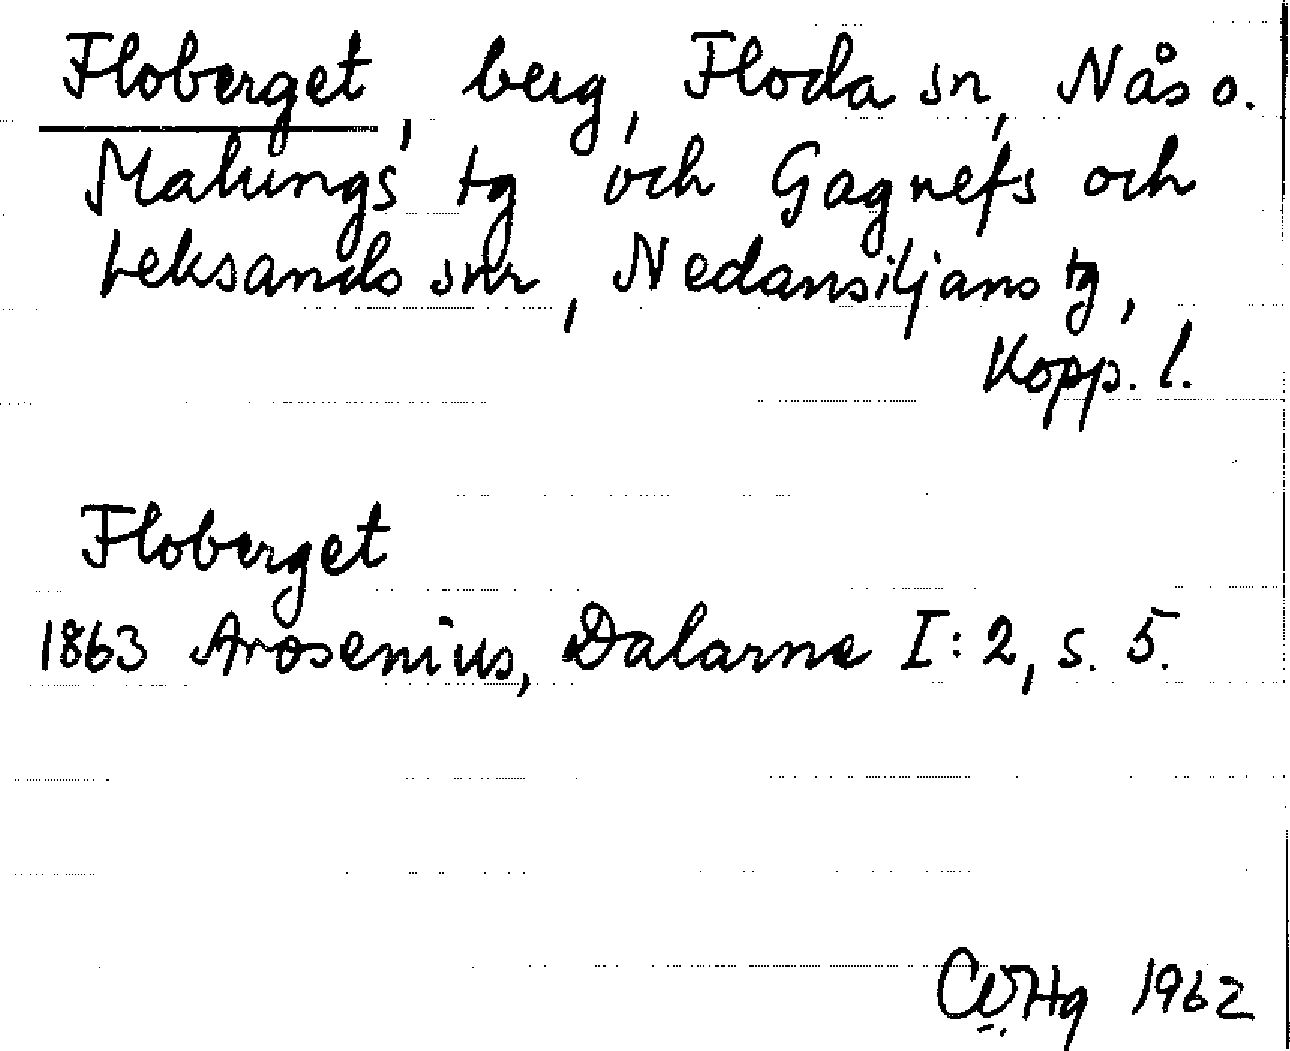 Floberget, berg, Floda sn, Nås o.
Malungs tg och Gagnefs och
Leksands snr, Nedansiljans tg,
Kopp. l.
Floberget
1863 Arosenius, Dalarne I:2, s. 5.
1962